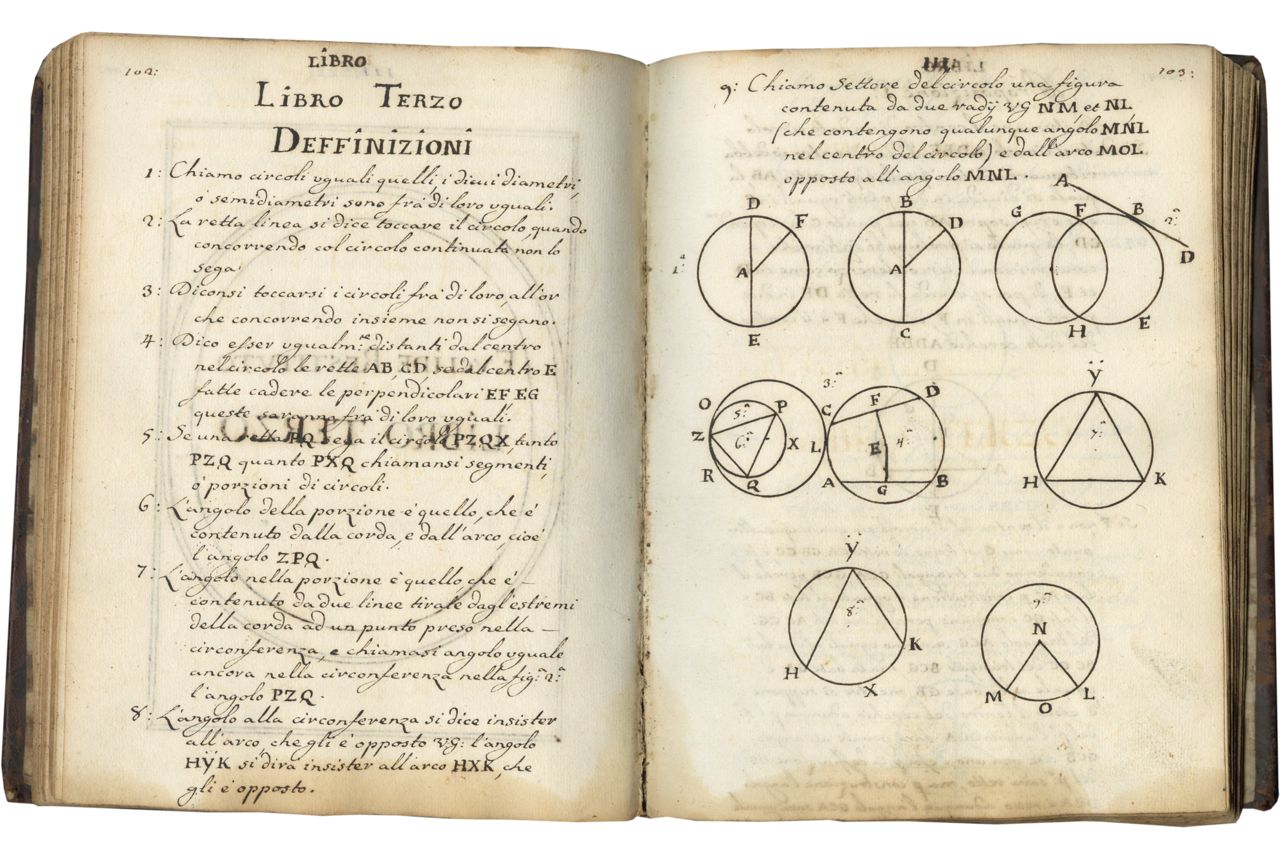 102:
LIBRO
LIBRO TERZO
DEFFINIZIONI
1: Chiamo circoli uguali quelli, i di cui diametri,
ò semidiametri sono frà di loro uguali.
2: La retta linea si dice toccare il circolo, quando
concorrendo col circolo continuata non lo
sega
3: Diconsi toccarsi i circoli frà di loro, all'or
che concorrendo insieme non si segano.
4: Dico esser ugualm:te distanti dal centro
nel circolo le rette AB, CD se dal centro E
fatte cadere le perpendicolari EF EG
queste saranno frà di loro uguali.
5: Se una retta PQ sega il circolo PZQX, tanto
PZQ quanto PXQ chiamansi segmenti,
ò porzioni di circoli.
6: L'angolo della porzione è quello, che è
contenuto dalla corda, e dall'arco, cioè
l'angolo ZPQ.
7: L'angolo nella porzione è quello che è -
contenuto da due linee tirate dagl'estremi
della corda ad un punto preso nella -
circonferenza, e chiamasi angolo uguale
ancora nella circonferenza nella fig:a 2:a
l'angolo PZQ.
8: L'angolo alla circonferenza si dice insister
all'arco, che gli è opposto VG: l'angolo
HŸK si dirà insister all'arco HXK, che
gli è opposto.
III
103:
9: Chiamo Settore del circolo una figura
contenuta da due radÿ VG NM et NL
(che contengono qualunque angolo MNL
nel centro del circolo) e dall'arco MOL
opposto all'angolo MNL.
A
D B G F B
F D 2:a
1:a A A D
E C H E
O 5:a P 3:a C F D Ÿ
Z 6:a X L E 4:a 7:a
R Q A G B H K
Ÿ 9:a
8:a N
K
H X M O L